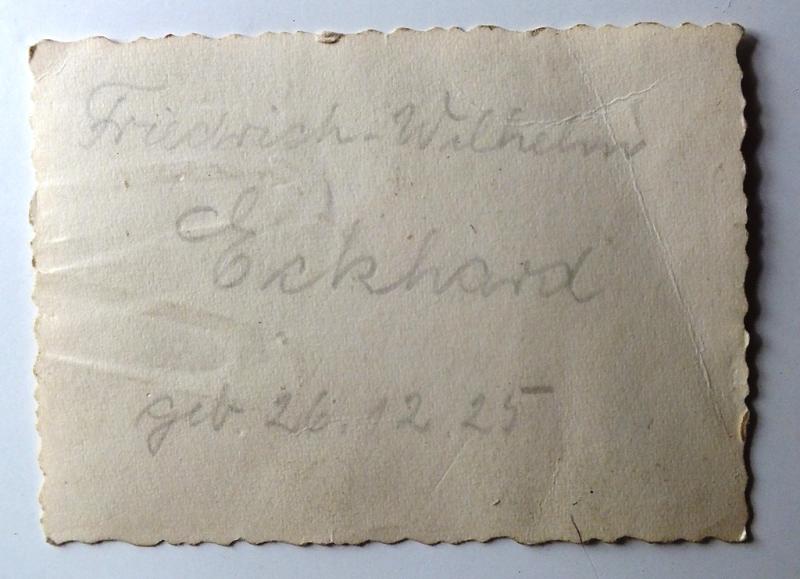 Friedrich-Wilhelm
Eckhard
geb. 26.12.25